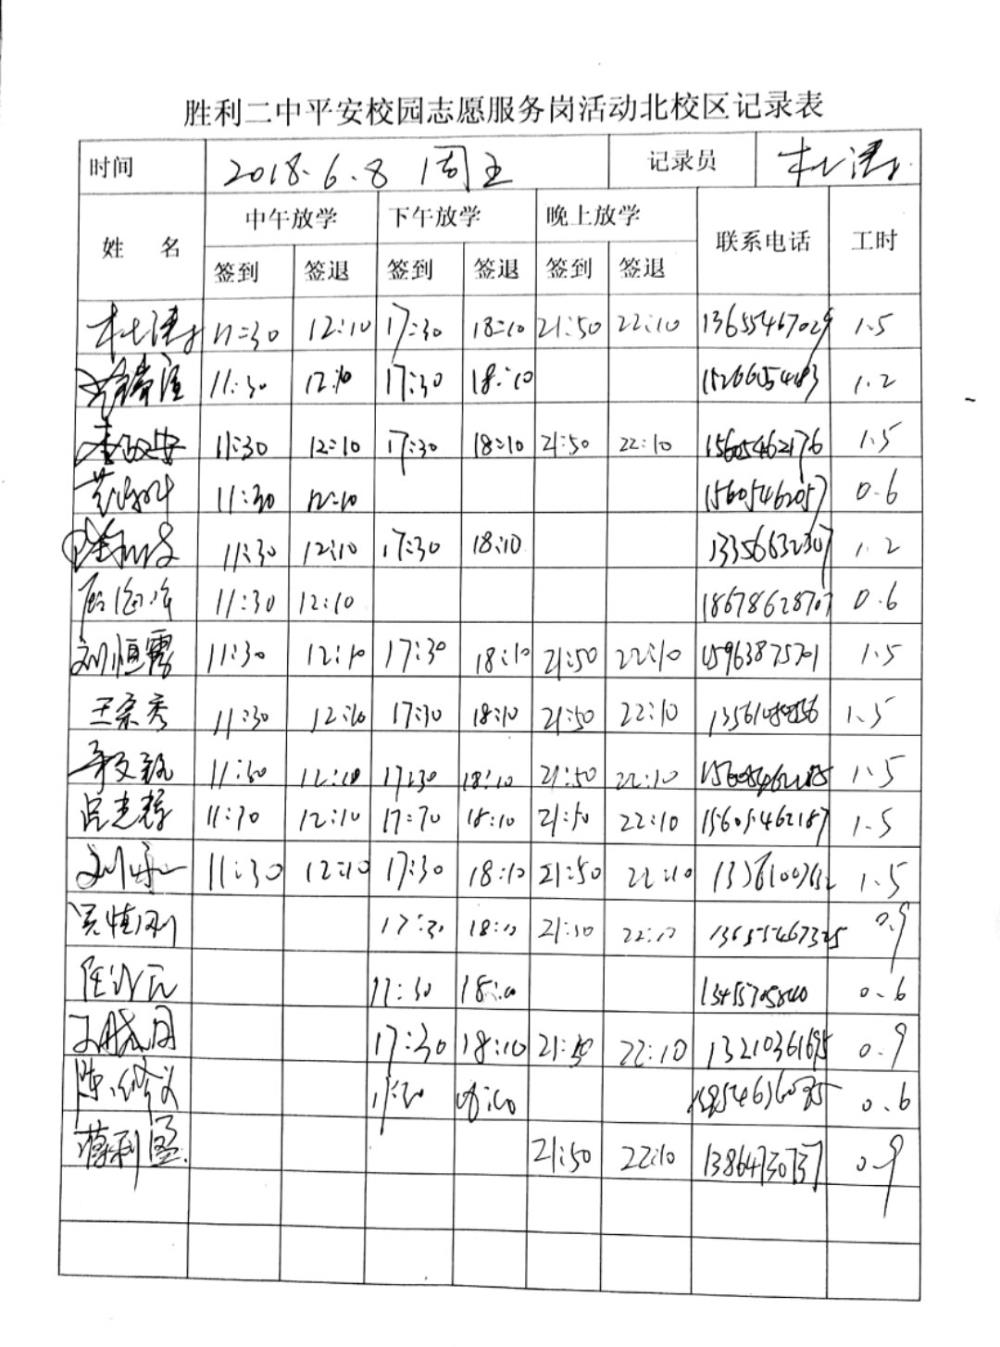 胜利二中平安校园志愿服务岗活动北校区记录表
时间 2018.6.8 周五 记录员 杜涛
姓 名 中午放学 下午放学 晚上放学 联系电话 工时
签到 签退 签到 签退 签到 签退
杜涛 11:30 12:10 17:30 18:10 21:50 22:10 13655467029 1.5
11:30 12:10 17:30 18:10 1.2
11:30 12:10 17:30 18:10 21:50 22:10 15605462176 1.5
11:30 12:10 15605462057 0.6
11:30 12:10 17:30 18:10 13356632307 1.2
11:30 12:10 18678628707 0.6
刘恒霞 11:30 12:10 17:30 18:10 21:50 22:10 15963875701 1.5
王宗秀 11:30 12:10 17:30 18:10 21:50 22:10 1.5
11:30 12:10 17:30 18:10 21:50 22:10 1.5
吕志辉 11:30 12:10 17:30 18:10 21:50 22:10 15605462187 1.5
11:30 12:10 17:30 18:10 21:50 22:10 1.5
吴慎刚 17:30 18:10 21:50 22:10 13655467325 0.9
17:30 18:10 13455705840 0.6
17:30 18:10 21:50 22:10 13210361695 0.9
陈修义 17:30 18:10 0.6
蒋利盈 21:50 22:10 13864730737 0.9